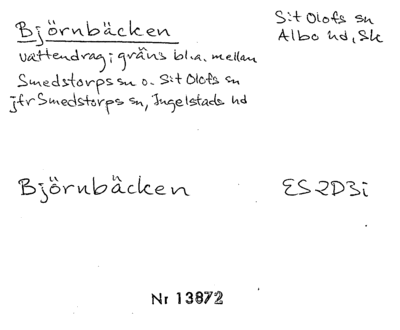 Björnbäcken
S:t Olofs sn
Albo hd, Sk
vattendrag i gräns bl.a. mellan
Smedstorps sn o. S:t Olofs sn
jfr Smedstorps sn, Ingelstads hd
Björnbäcken
ES2D3i
Nr 13872